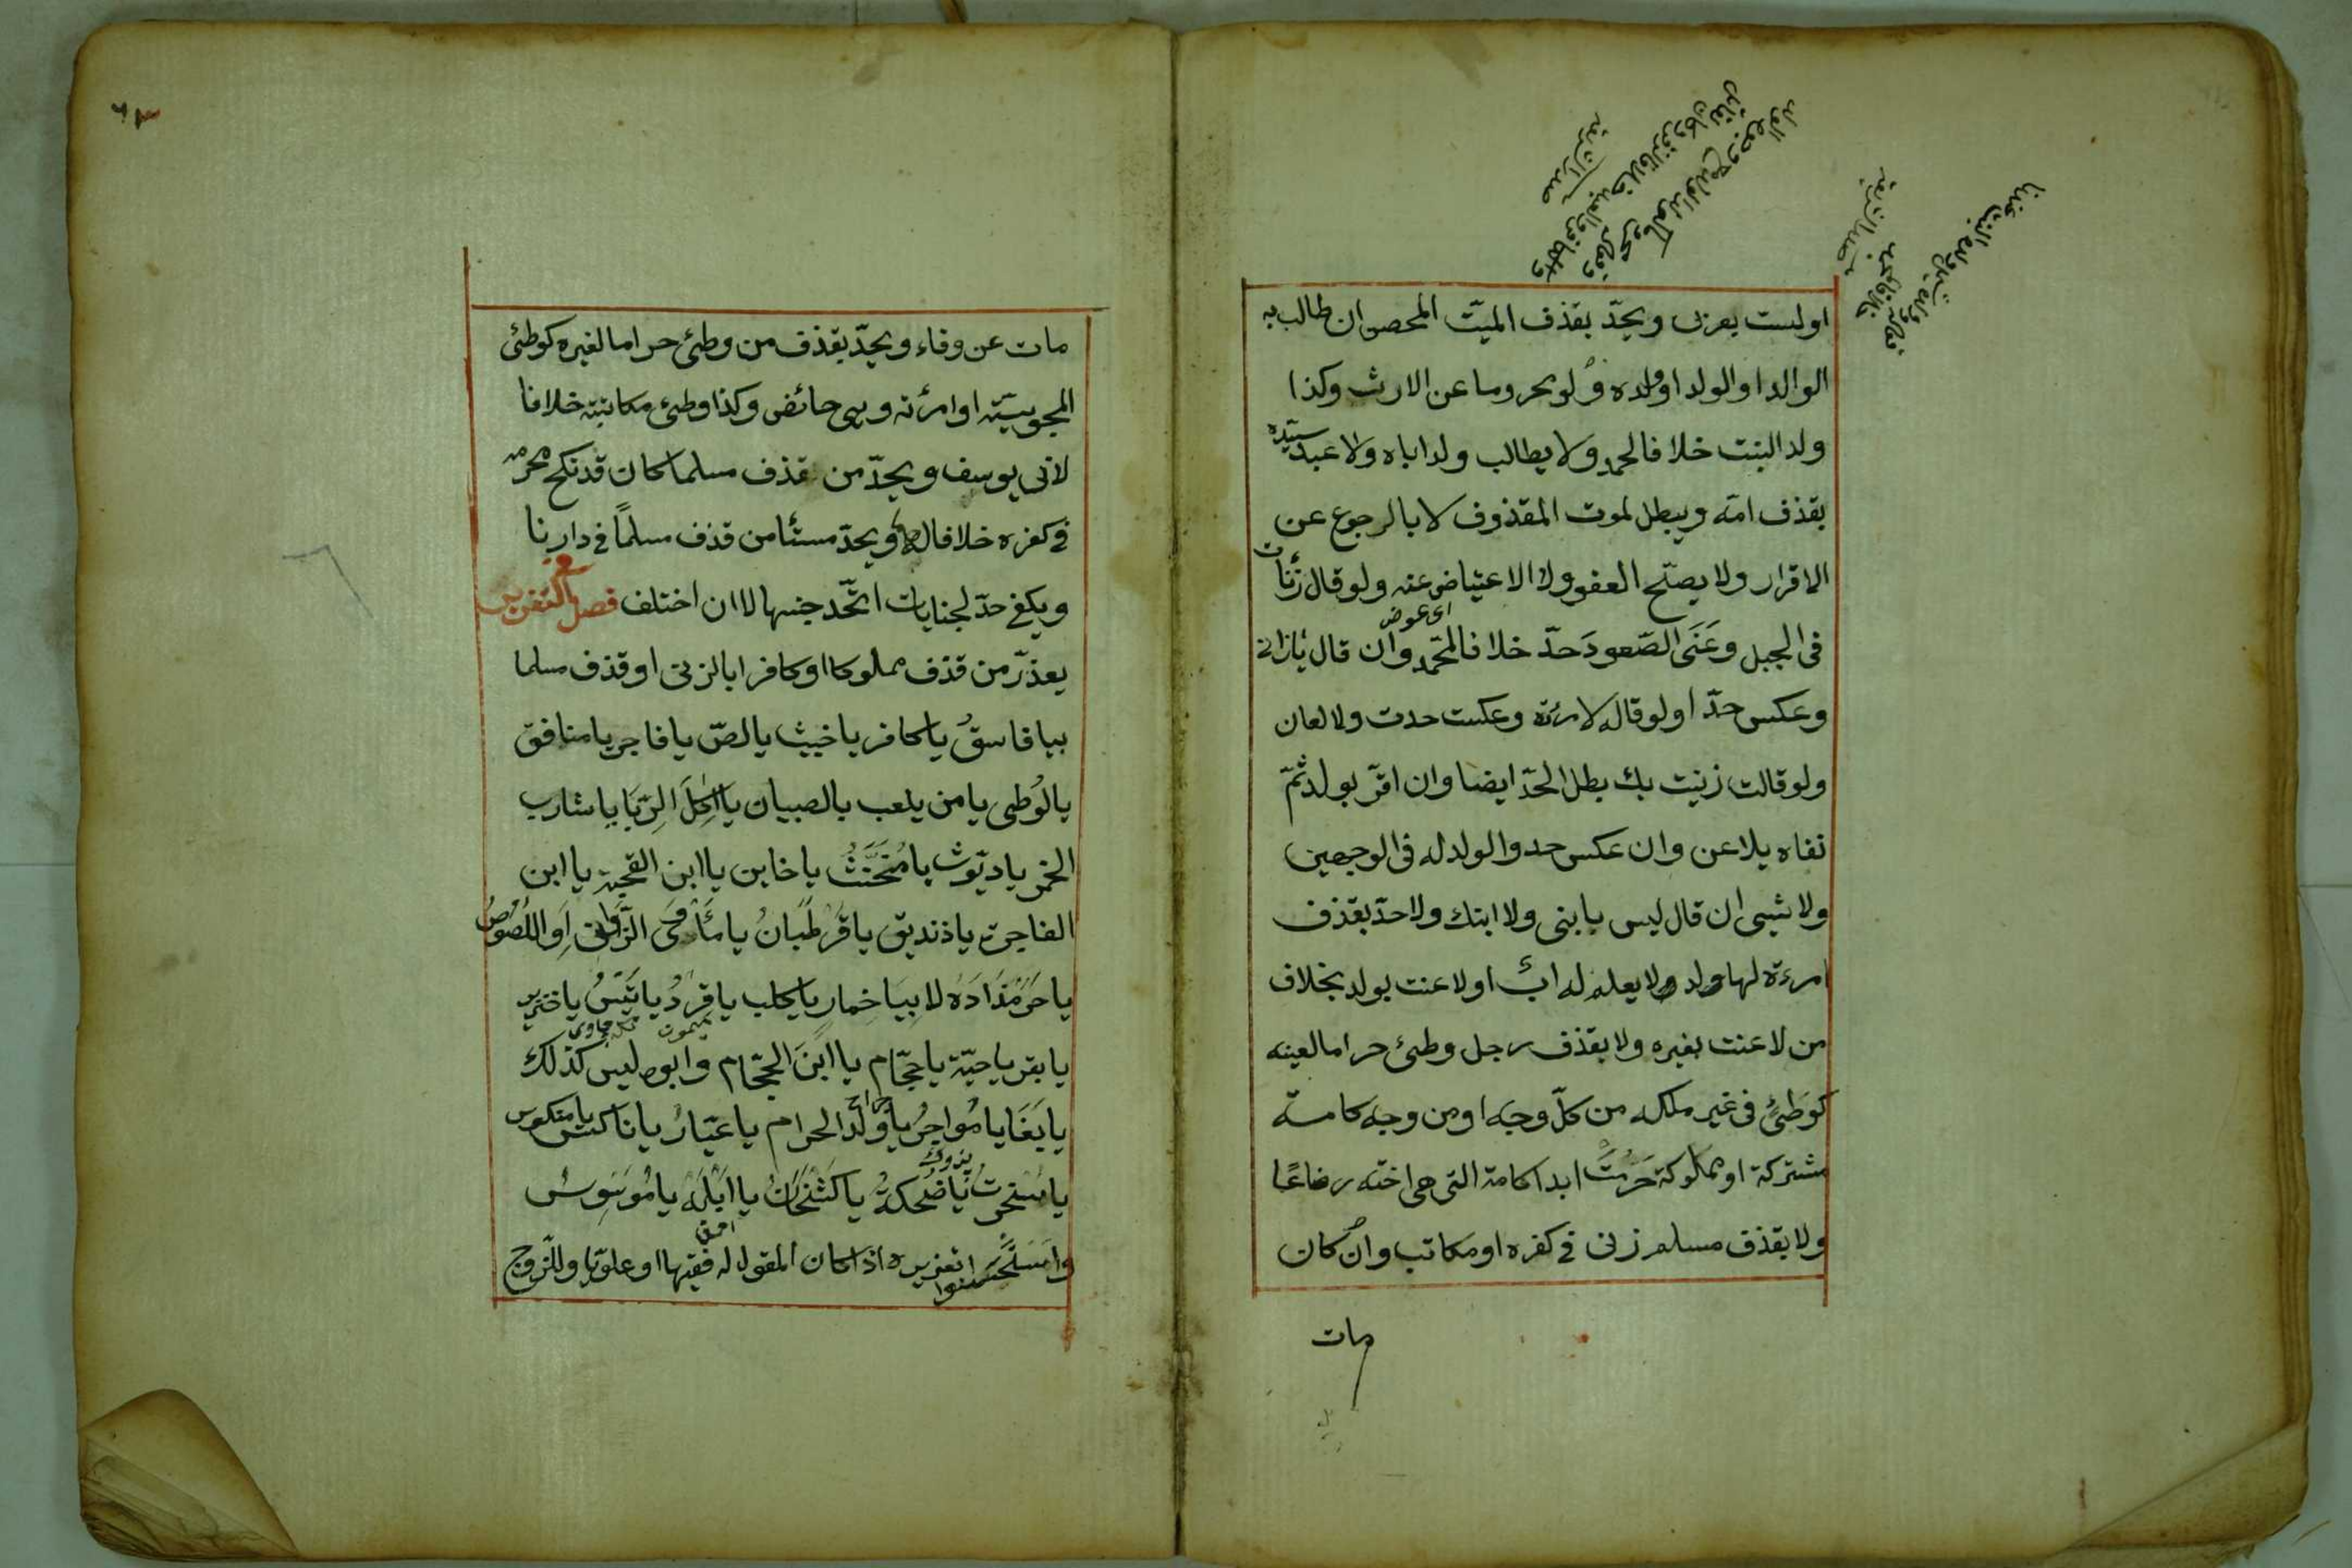 او لست بعربى ويحدّ بقذف الميّت المحصن ان طالب به
الوالد او الولد او ولده ولو محروما عن الارث وكذا
ولد البنت خلافا لمحمد ولا يطالب ولد اباه ولا عبد سيّده
بقذف امّه ويبطل بموت المقذوف لا بالرجوع عن
الاقرار ولا يصحّ العفو ولا الاعتياض عنه ولو قال زنأت
اى عوض
فى الجبل وعَنَى الصّعود حَدّ خلافا لمحمّد وان قال يازانى
وعكس حدّا ولو قاله لامرئته وعكست حدت ولا لعان
ولو قالت زنيت بك بطل الحدّ ايضا وان اقرّ بولد ثمّ
نفاه يلاعن وان عكس حد والولد له فى الوجهين
ولا شيى ان قال ليس بابنى ولا ابنك ولا حدّ بقذف
امرءة لها ولد ولا يعلم له ابٌ او لاعنت بولد بخلاف
من لاعنت بغيره ولا بقذف رجل وطئ حراما لعينه
كوَطئٍ فى غير ملكه من كلّ وجه او من وجه كامة
مشتركة او مملوكة حَرُمَتْ ابدا كامة التى هى اخته رضاعًا
ولا بقذف مسلم زنى فى كفره او مكاتب وان كان
مات
٦٣
مات عن وفاء ويحدّ بقذف من وطئ حراما لغيره كوطئ
المجوسيّة او امرئته وهى حائض وكذا وطئ مكاتبته خلافا
لابى يوسف ويحدّ من قذف مسلما كان قد نكح محرمه
فى كفره خلافا لهما ويحدّ مستئا من قذف مسلمًا فى دارنا
ويكفى حدّ لجنايات اتّحد جنسها لا ان اختلف فصل فى التعزير
يعذّر من قذف مملوكا او كافرا بالزنى او قذف مسلما
بيا فاسقُ يا كافر يا خبيث يا لصّ يا فاجر يا منافق
يا لُوطى يا من يلعب بالصبيان يا آكِلَ الرِّبَا يا شارب
الخمر يا ديّوث يا مُخَنَّثُ يا خاين يا ابن القحبة يا ابن
الفاجرة يا زنديق يا قَرْطَبَانُ يا مَأْوَى الزَّوَانى او اللُّصُوص
يا حَرَمْزَادَه لا بِيَا خِمار يا كلب يا قِردُ يا تَيْسُ يا خنزير
ميمون تكه
يا بقر يا حيّة يا حجّام يا ابنَ الحجّام وابوه ليس كذلك
يا بَغَا يا مُواجِرُ يا وَلَدَ الحرام يا عَيّارُ يا ناكس يا منكوس
يا سُخرَةُ يا ضُحكةُ يا كَشْخَانُ يا ابلهُ يا مُوَسْوِسُ
احمق
واستحسنوا تعزيره اذا كان المقول له فقيها او علويّا وللزّوج